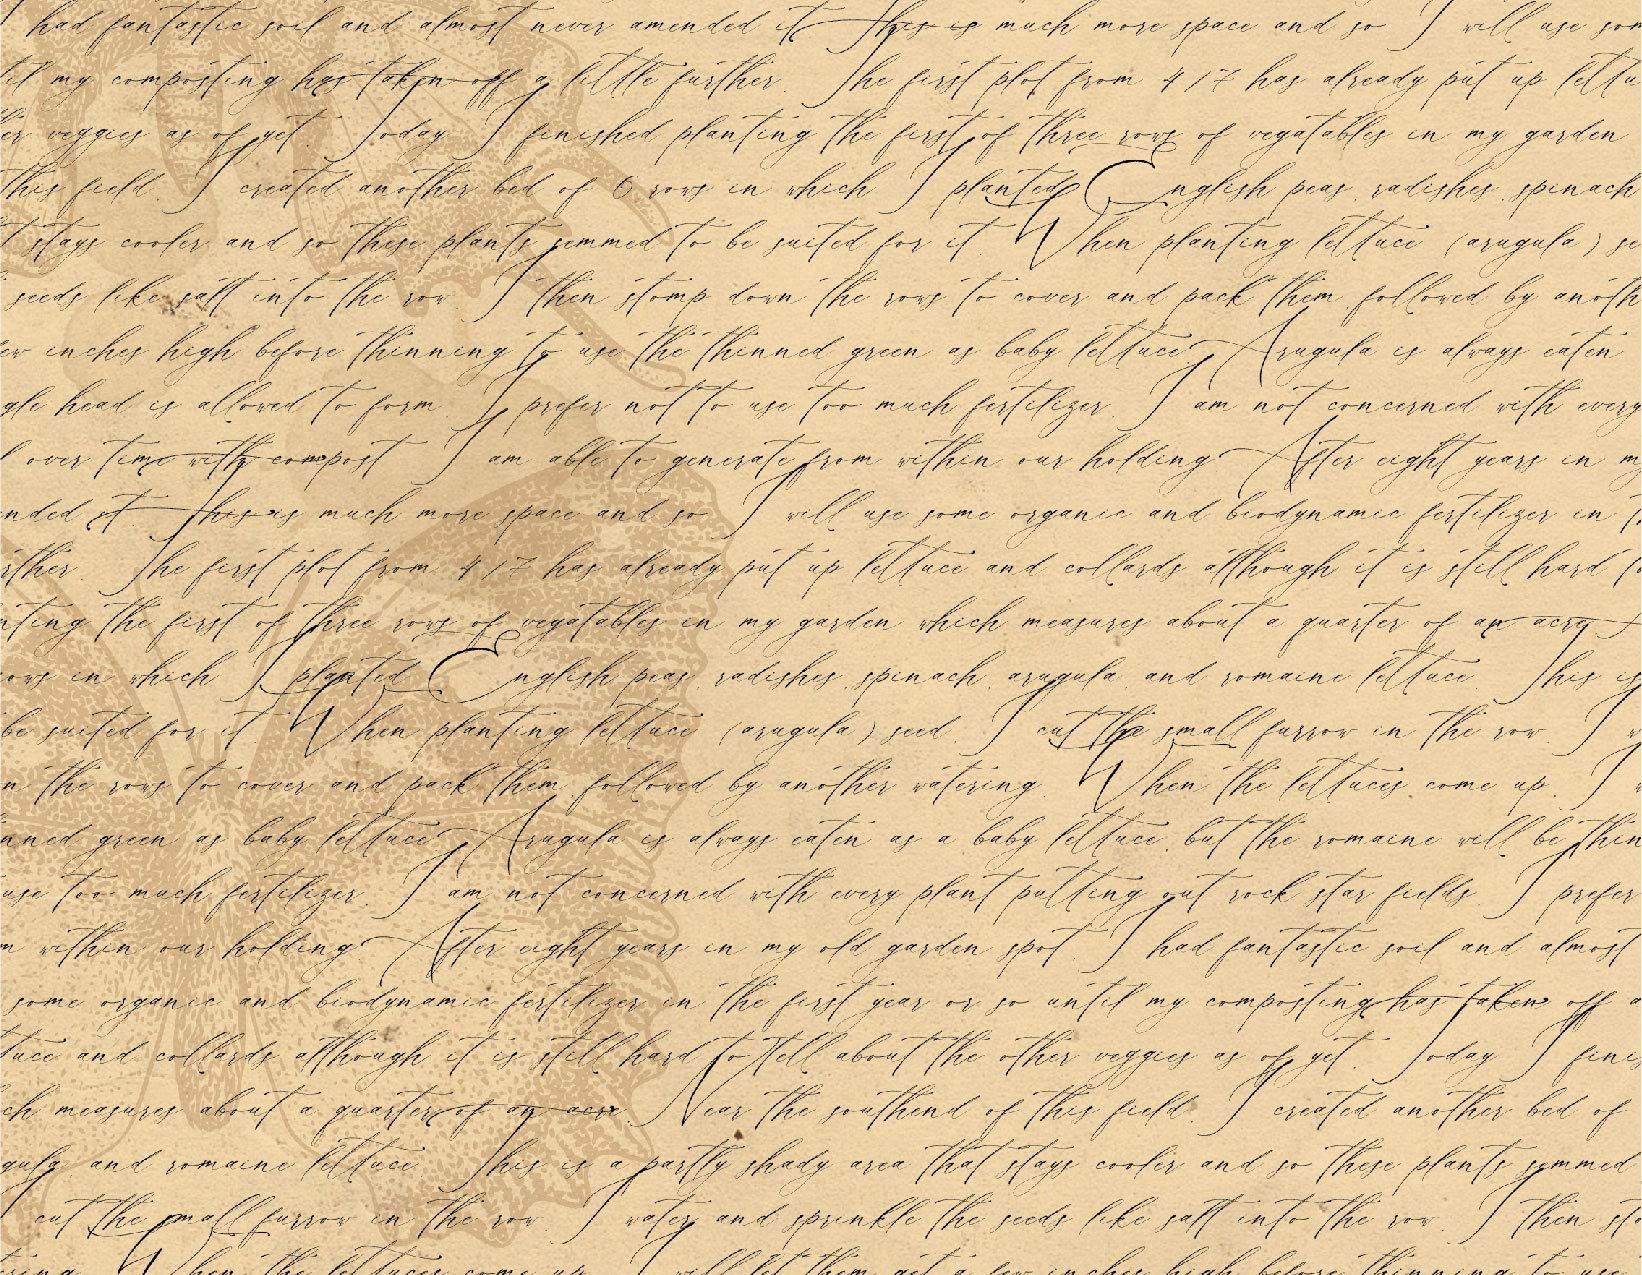 had fantastic soil and almost never amended it This is much more space and so I will use som
til my composting has taken off a little further. The first plot from 4/7 has already put up lettu
her veggies as of yet. Today I finished planting the first of three rows of vegatables in my garden
this field. I created another bed of 6 rows in which I planted English peas, radishes, spinach
t stays cooler and so these plants semmed to be suited for it. When planting lettuce (arugula) se
seeds like salt into the row. I then stomp down the rows to cover and pack them, followed by anoth
ew inches high before thinning to use the thinned green as baby lettuce. Arugula is always eaten
gle head is allowed to form. I prefer not to use too much fertilizer. I am not concerned with every
l over time with compost I am able to generate from within our holding. After eight years in my
nded it. This is much more space and so I will use some organic and biodynamic fertilizer in t
rther. The first plot from 4/7 has already put up lettuce and collards although it is still hard to
nting the first of three rows of vegatables in my garden which measures about a quarter of an acre.
ows in which I planted English peas, radishes, spinach, arugula, and romaine lettuce. This is
be suited for it. When planting lettuce (arugula) seed, I cut the small furrow in the row. I w
n the rows to cover and pack them, followed by another watering. When the lettuces come up, I w
nned green as baby lettuce. Arugula is always eaten as a baby lettuce, but the romaine will be thin
use too much fertilizer. I am not concerned with every plant putting out rock star fields. I prefer
m within our holding. After eight years in my old garden spot, I had fantastic soil and almost
some organic and biodynamic fertilizer in the first year or so until my composting has taken off a
tuce and collards although it is still hard to tell about the other veggies as of yet. Today I finis
ch measures about a quarter of an acre. Near the southend of this field, I created another bed of
gula, and romaine lettuce. This is a partly shady area that stays cooler and so these plants semmed
cut the small furrow in the row. I water and sprinkle the seeds like salt into the row. I then sto
tering. When the lettuces come up, I will let them get a few inches high before thinning to use